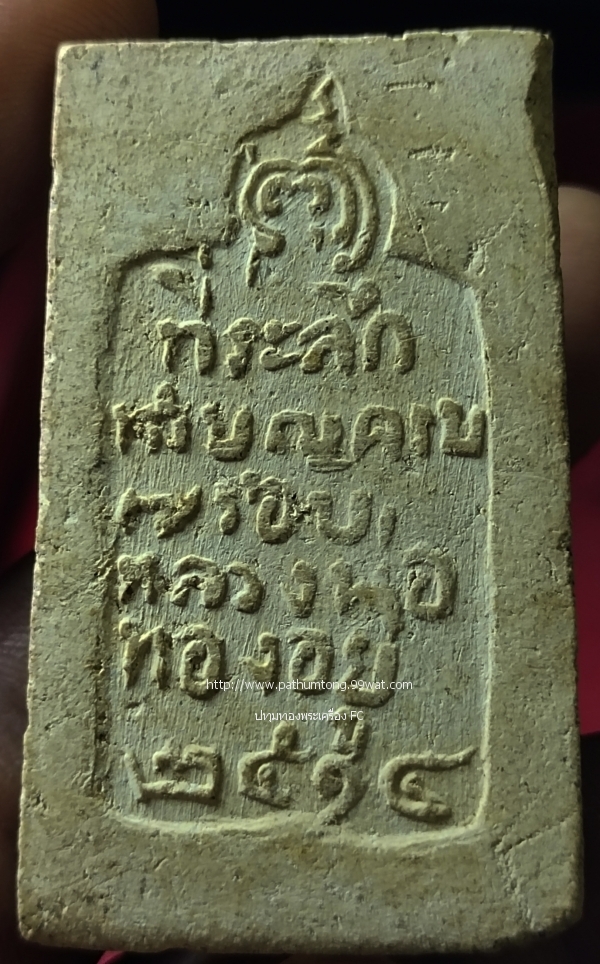 ที่ระลึก
ทำบุญครบ
๗ รอบ
หลวงพ่อ
ทองอยู่
http://www.pathumtong.99wat.com
ปทุมทองพระเครื่อง FC
๒๕๑๔